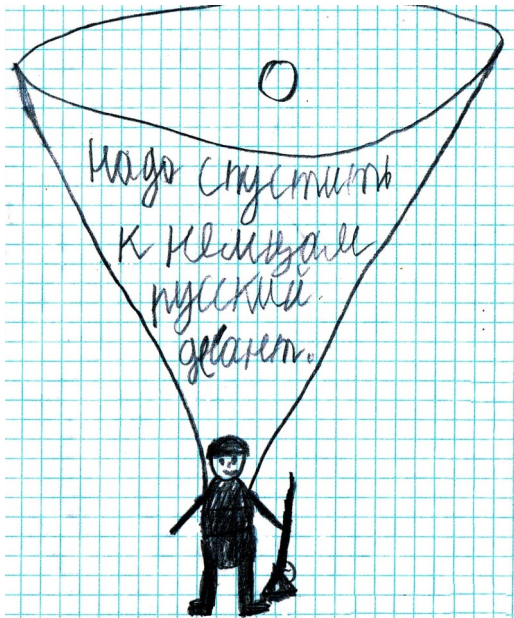 Надо спустить
к немцам
русский
десант.